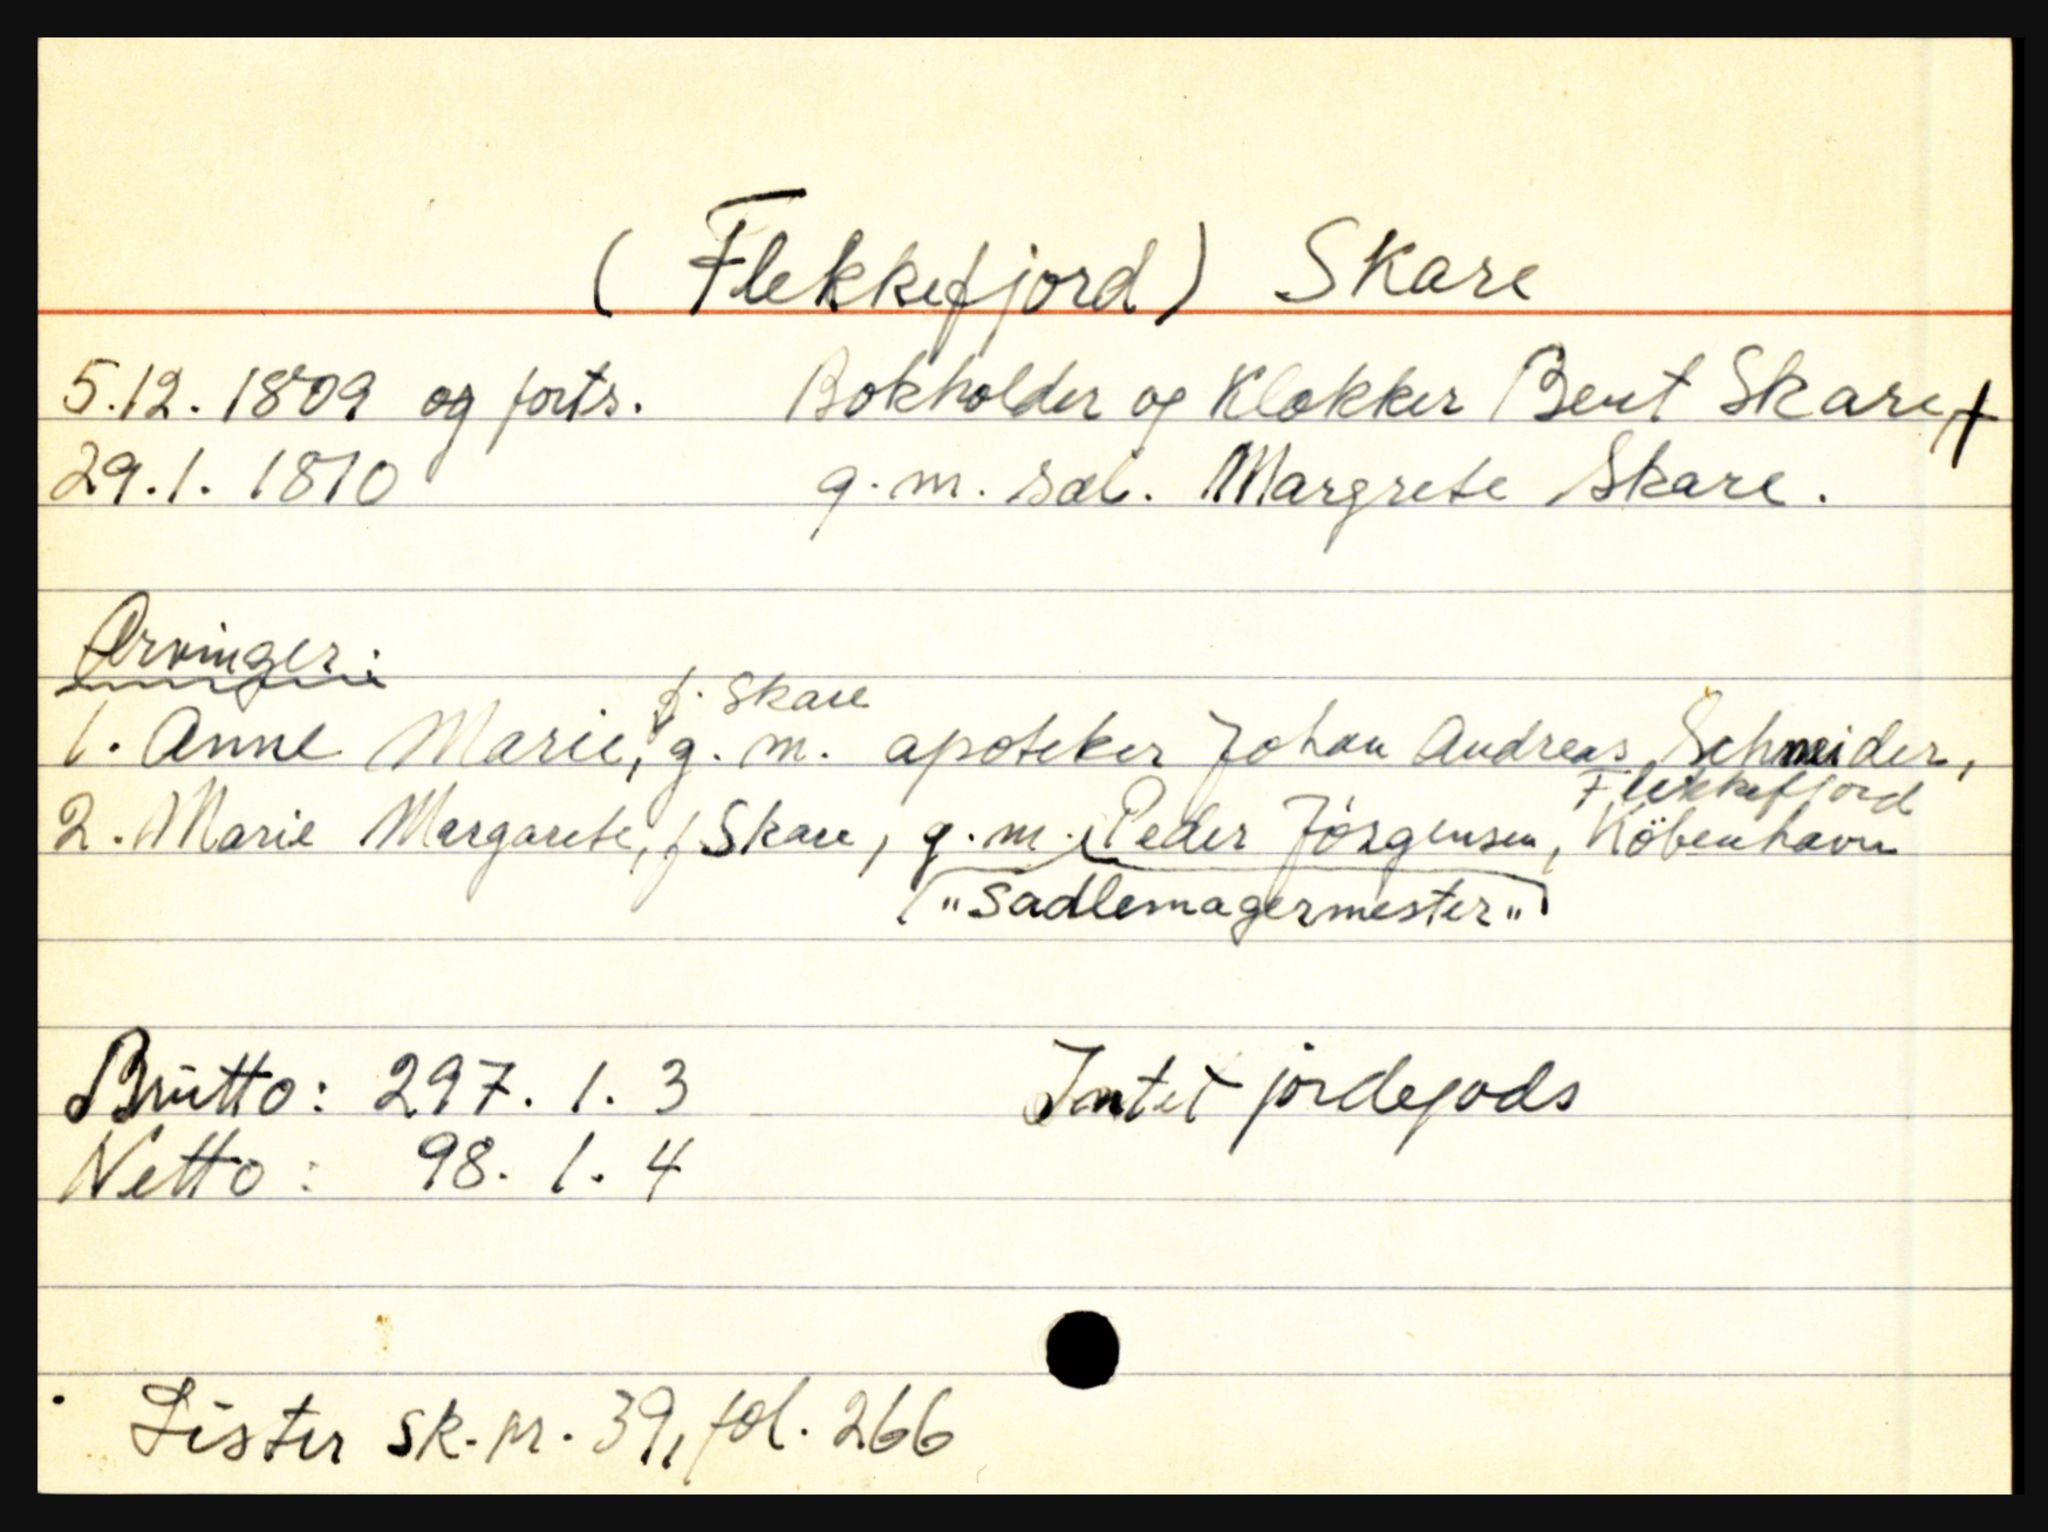 (Flekkefjord) Skare
5.12. 1809 og forts. Bokholder og Klokker Bent Skare +
29.1. 1810 g.m. sal. Margrete Skare.
Arvinger:
f. Skare
1. Anne Marie, g. m. apoteker Johan Andreas Schneider,
Flekkefjord
2. Marie Margarete, f Skare, g.m. Peder Jörgensen, Köbenhavn
"Sadlemagermester"
Brutto: 297. 1. 3 Intet jordegods
Netto: 98. 1. 4
Lister sk.pr. 39, fol. 266